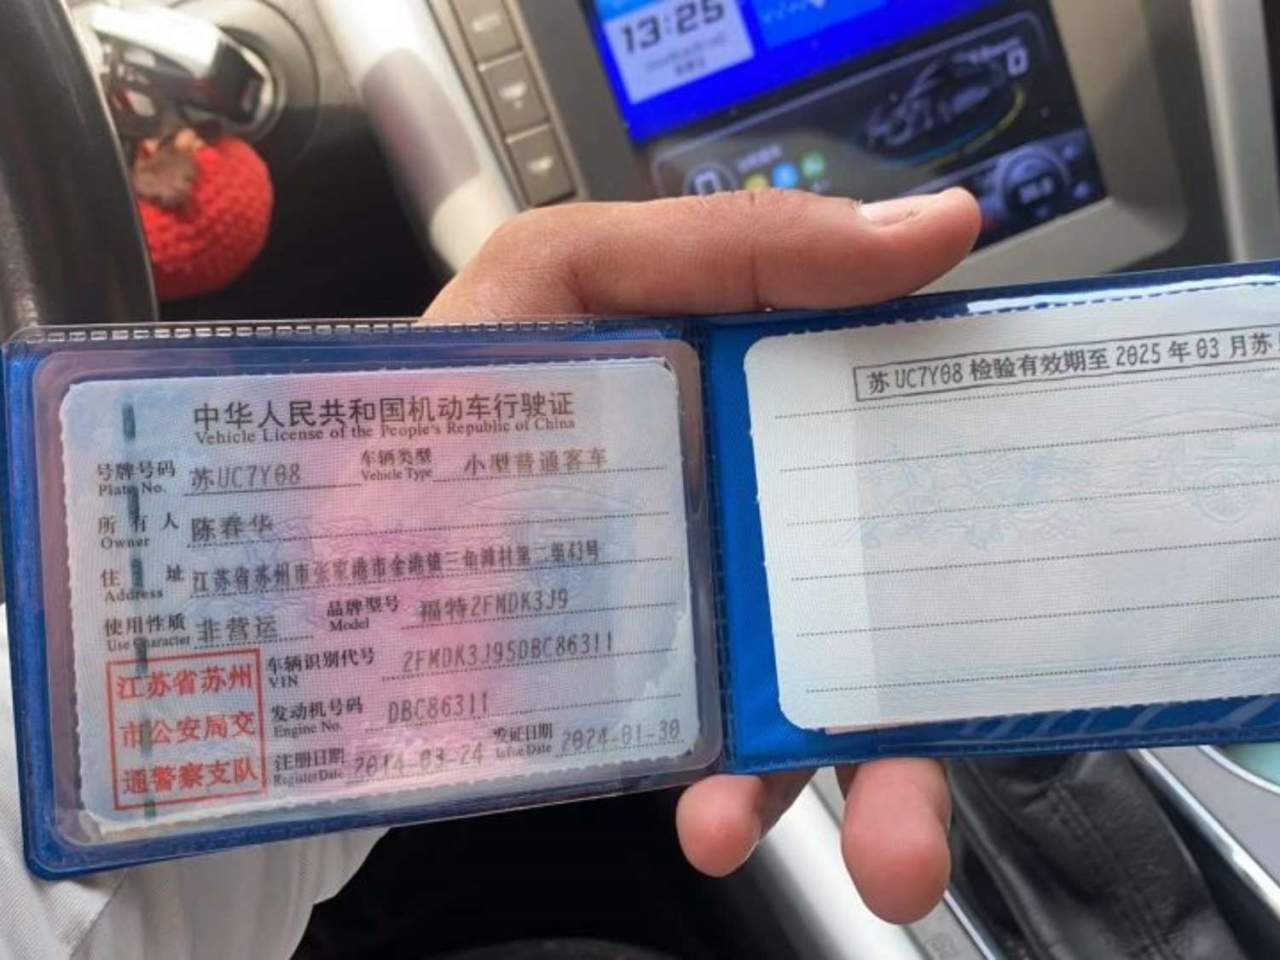 13:25
0
中华人民共和国机动车行驶证
Vehicle License of the People's Republic of China
号牌号码 Plate No. 苏UC7Y08 车辆类型 Vehicle Type 小型普通客车
所有人 Owner 陈春华
住址 Address 江苏省苏州市张家港市金港镇三角滩村第二组43号
使用性质 Use Character 非营运 品牌型号 Model 福特2FMDK3J9
车辆识别代号 VIN 2FMDK3J95DBC86311
发动机号码 Engine No. DBC86311
注册日期 Register Date 2014-03-24 发证日期 Issue Date 2024-01-30
江苏省苏州
市公安局交
通警察支队
苏UC7Y08检验有效期至2025年03月苏